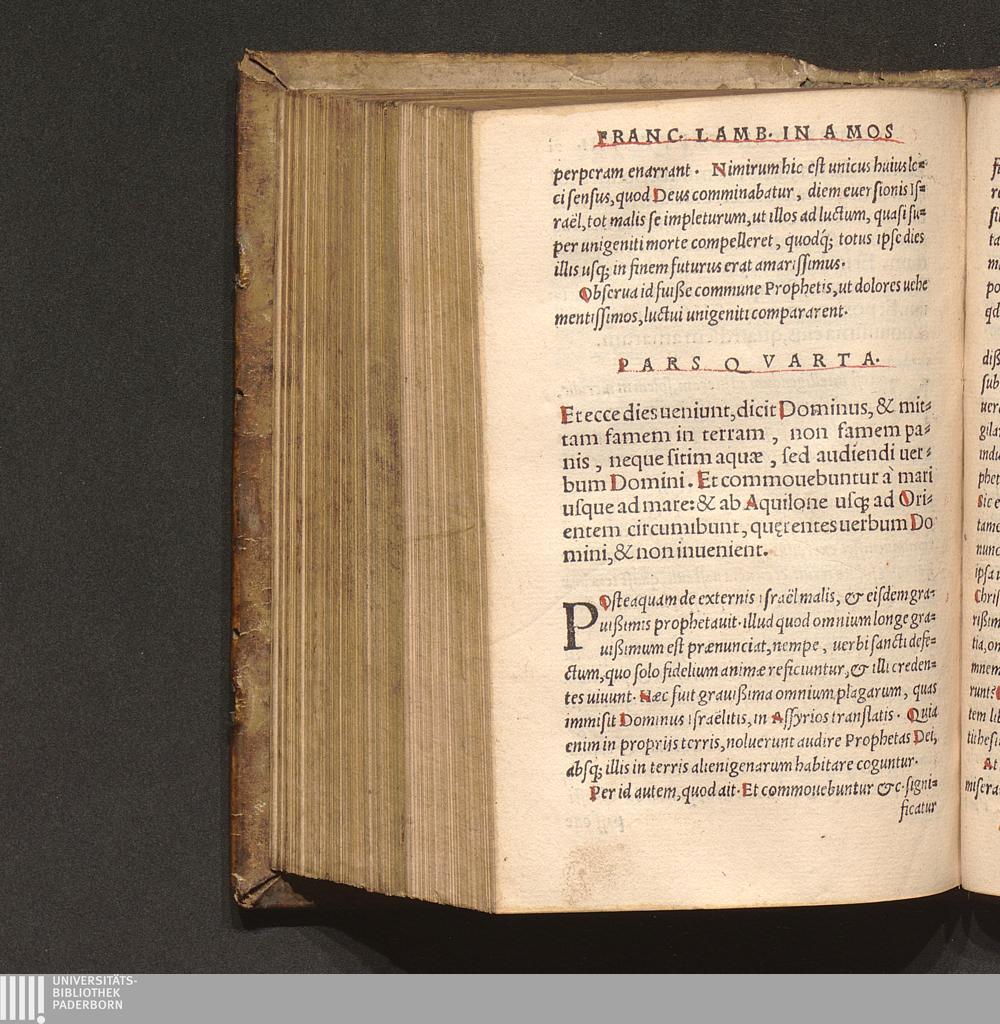 FRANC. LAMB. IN AMOS
perperam enarrant. Nimirum hic est unicus huius lo⸗
ci sensus, quod Deus comminabatur, diem euersionis Is⸗
raël, tot malis se impleturum, ut illos ad luctum, quasi su⸗
per unigeniti morte compelleret, quodq́; totus ipse dies
illis usq; in finem futurus erat amarissimus.
Obserua id fuiße commune Prophetis, ut dolores uehe
mentissimos, luctui unigeniti compararent.
PARS QVARTA.
Et ecce dies ueniunt, dicit Dominus, & mit⸗
tam famem in terram, non famem pa⸗
nis, neque sitim aquæ, sed audiendi uer⸗
bum Domini. Et commouebuntur à mari
usque ad mare: & ab Aquilone usq; ad Ori⸗
entem circumibunt, quęrentes uerbum Do
mini, & non inuenient.
POsteaquam de externis israël malis, & eisdem gra⸗
uißimis prophetauit. illud quod omnium longe gra⸗
uißimum est prænunciat, nempe, uerbi sancti defe⸗
ctum, quo solo fidelium animæ reficiuntur, & illi creden⸗
tes uiuunt. Hæc fuit grauißima omnium plagarum, quas
immisit Dominus israëlitis, in Assyrios translatis. Quia
enim in proprijs terris, noluerunt audire Prophetas Dei,
absq; illis in terris alienigenarum habitare coguntur.
Per id autem, quod ait. Et commouebuntur &c. signi⸗
ficatur
UNIVERSITÄTS-
BIBLIOTHEK
PADERBORN